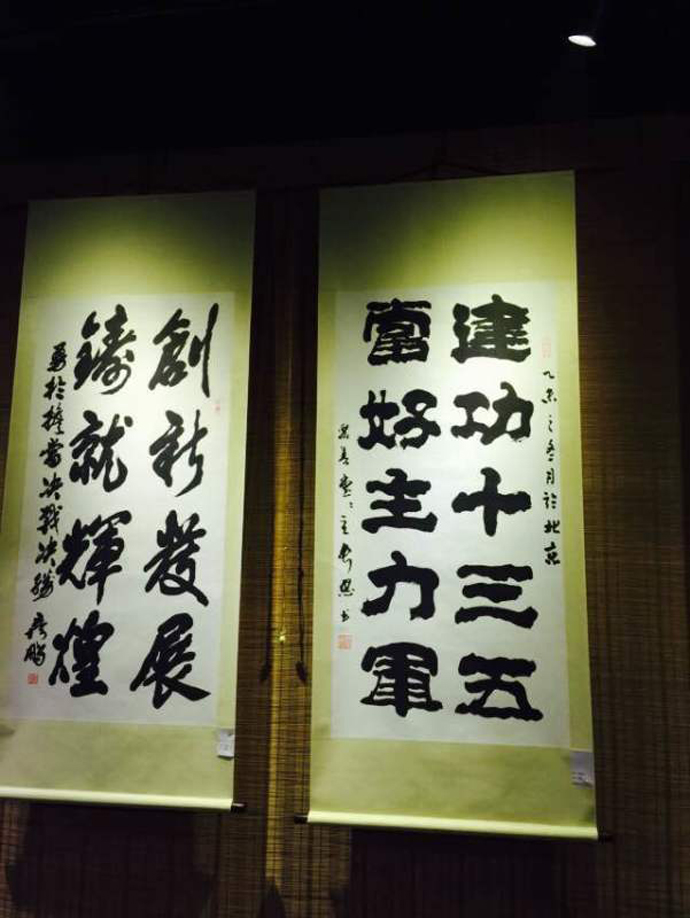 乙未之冬月於北京
建功十三五
當好主力軍
主
書
創新發展
鑄就輝煌
勇於擔當決戰決勝
鵬